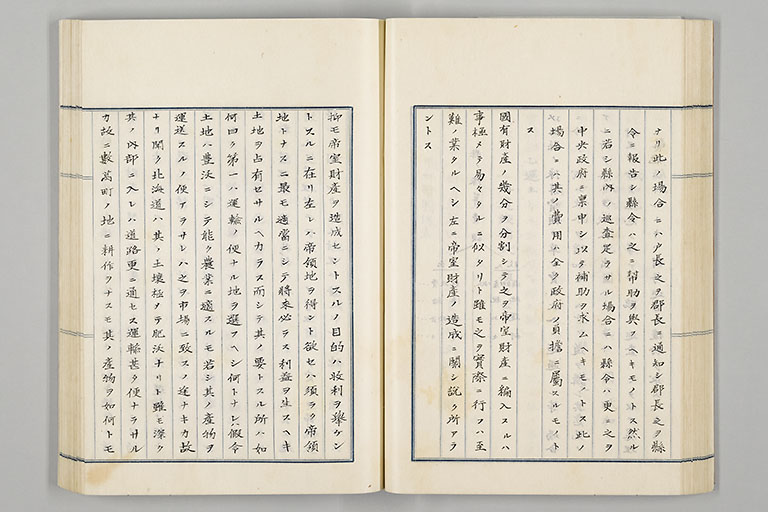 ナリ此ノ場合ニハ戸長之ヲ郡長ニ通知シ郡長之ヲ縣
令ニ報告シ縣令ハ之ニ幇助ヲ與フヘキモノトス然ル
ニ若シ縣內ノ巡査足ラサル場合ニハ縣令ハ更ニ之ヲ
中央政府ニ稟申シ以テ補助ヲ求ムヘキモノトス此ノ
場合ニハ其ノ費用ハ全ク政府ノ負擔ニ屬スルモノト
ス
國有財產ノ幾分ヲ分割シテ之ヲ帝室財產ニ編入スルハ
事極メテ易々タルニ似タリト雖モ之ヲ實際ニ行フハ至
難ノ業タルヘシ左ニ帝室財產ノ造成ニ關シ說ク所アラ
ントス
抑モ帝室財產ヲ造成セントスルノ目的ハ收利ヲ擧ケン
トスルニ在リ左レハ帝領地ヲ得ント欲セハ須ラク帝領
地トナスニ最モ適當ニシテ將來必ラス利益ヲ生スヘキ
土地ヲ占有セサルヘカラス而シテ其ノ要トスル所ハ如
何曰ク第一ハ運輸ノ便ナル地ヲ選フヘシ何トナレハ假令
土地ハ豊沃ニシテ能ク農業ニ適スルモ若シ其ノ產物ヲ
運送スルノ便アラサレハ之ヲ市場ニ致スノ途ナキカ故
ナリ聞ク北海道ハ其ノ土壤極メテ肥沃ナリト雖モ深ク
其ノ內部ニ入レハ道路更ニ通セス運輸甚タ便ナラサル
カ故ニ數萬町ノ地ニ耕作ヲナスモ其ノ產物ヲ如何トモ